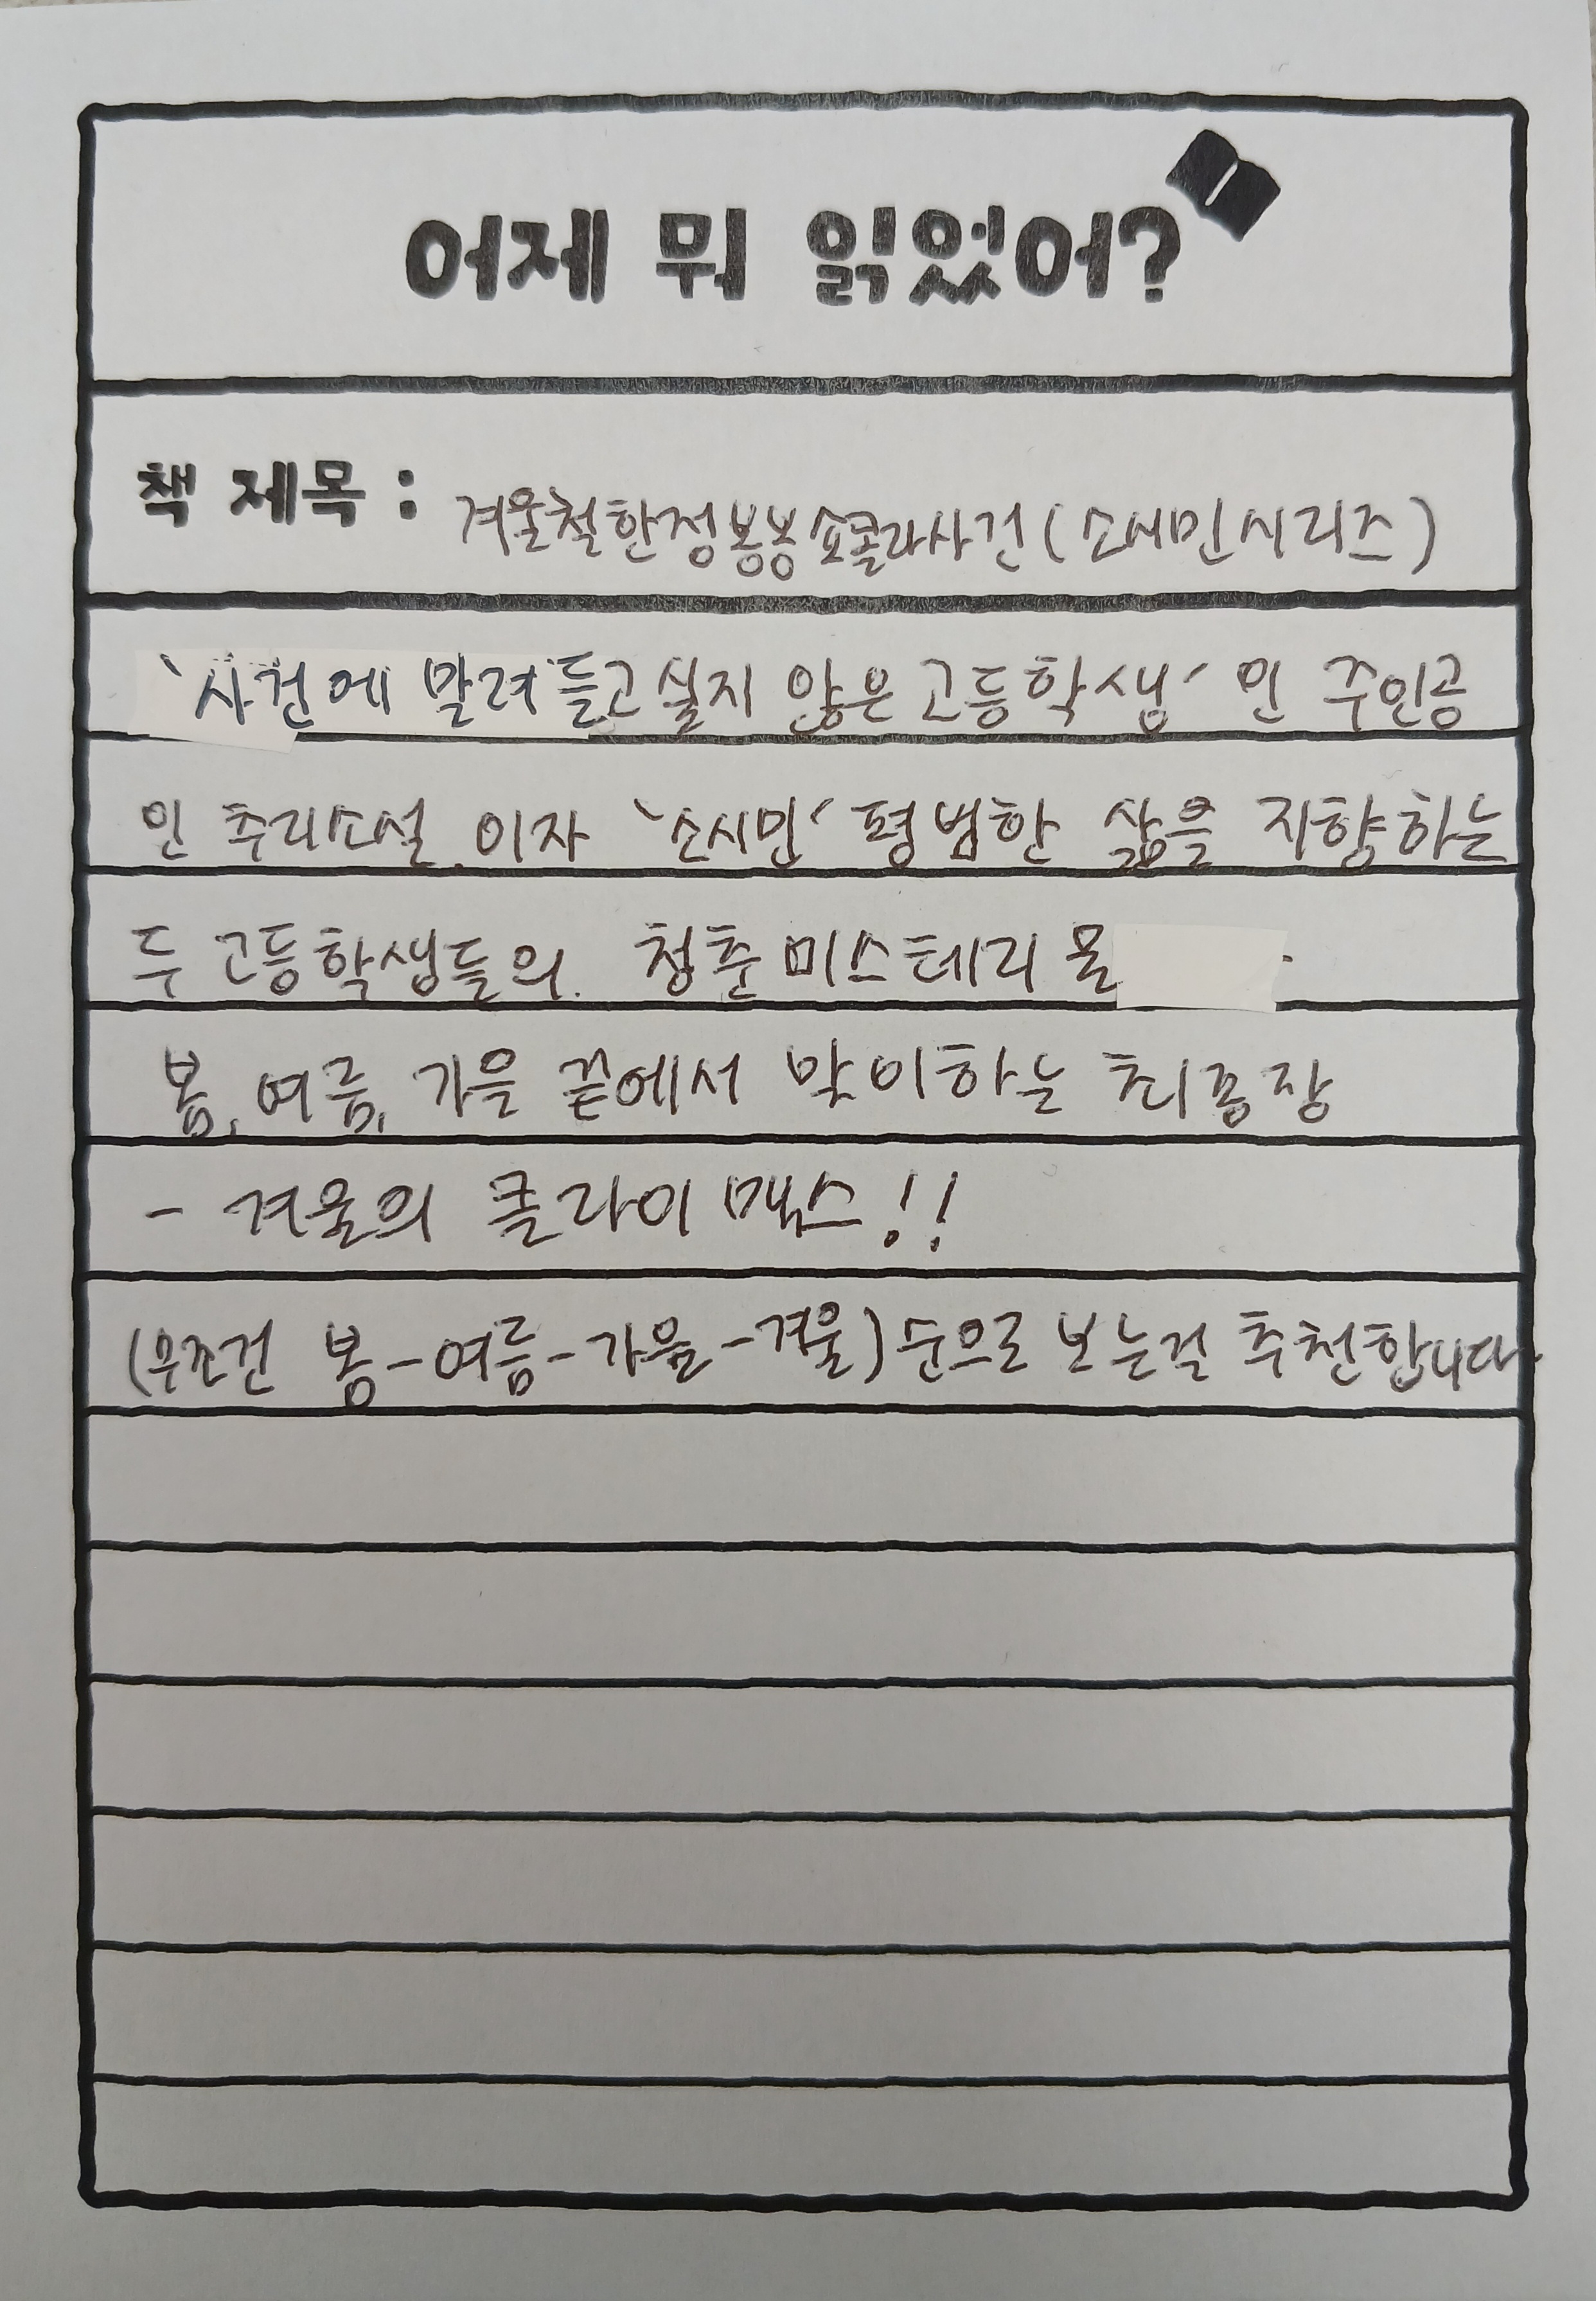 어제 뭐 읽었어?
책 제목 : 겨울철한정봉봉쇼콜라사건(소시민시리즈)
'사건에 말려들고싶지 않은 고등학생' 인 주인공
인 추리소설.이자 '소시민' 평범한 삶을 지향하는
두 고등학생들의. 청춘미스테리물.
봄, 여름, 가을 끝에서 맞이하는 최종장
- 겨울의 클라이맥스!!
(무조건 봄-여름-가을-겨울)순으로 보는걸 추천합니다.